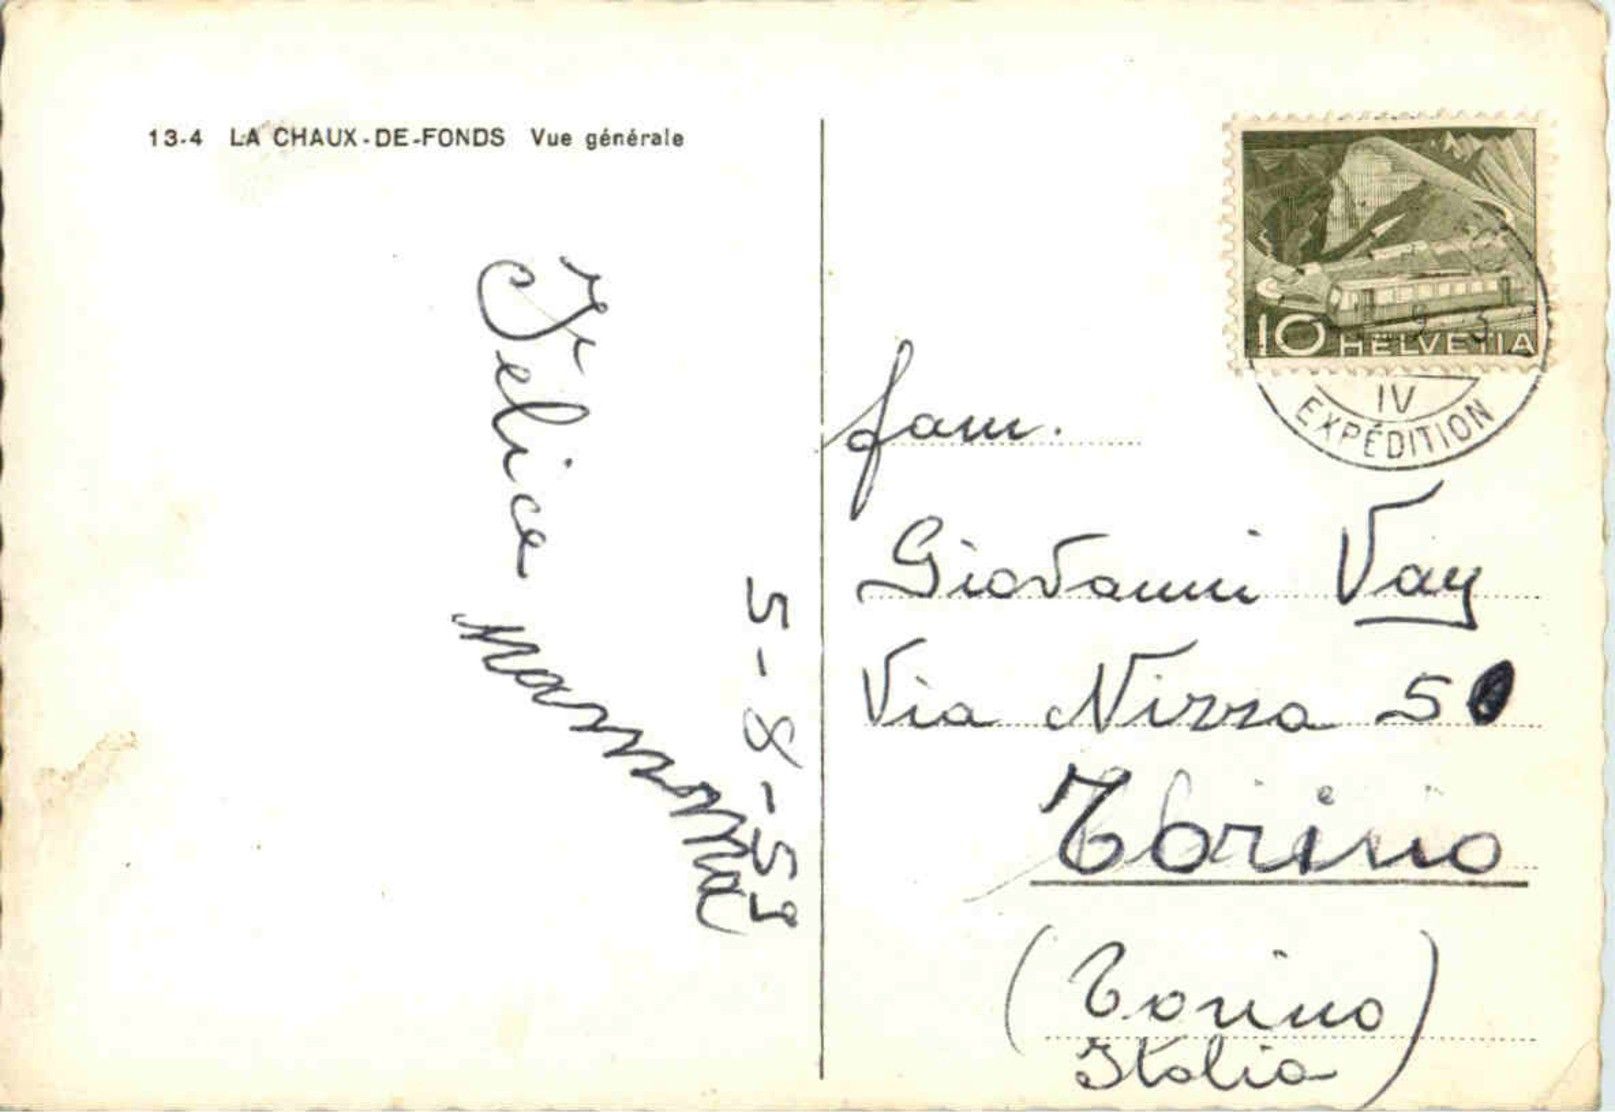 13-4 LA CHAUX-DE-FONDS Vue générale
Felice
5-8-59
10 HELVETIA
IV
EXPÉDITION
fam.
Giovanni Vay
Via Nizza 50
Torino
(Torino)
Italia